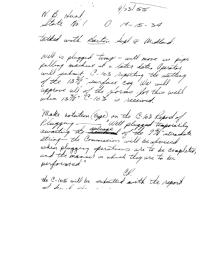 9/13/55
W B Hinal
State No 1 O 19-15-34
Talked with Barton Supt @ Midland.
Well is plugged Temp - will move in pipe
pulling machine at a later date. Operator
will submit C-103 reporting the setting
of the 13 3/8" surface csg. We will
approve all of the forms for this well
when 13 3/8" C-103 is received.
Make notation (typed) on the C-103 Report of
Plugging - "Well plugged temporarily
awaiting the of the 9 5/8 intermediate
string - the Commission will be advised
when plugging operations are to be completed,
and the manner in which they are to be
performed"
the C-105 will be submitted with the report